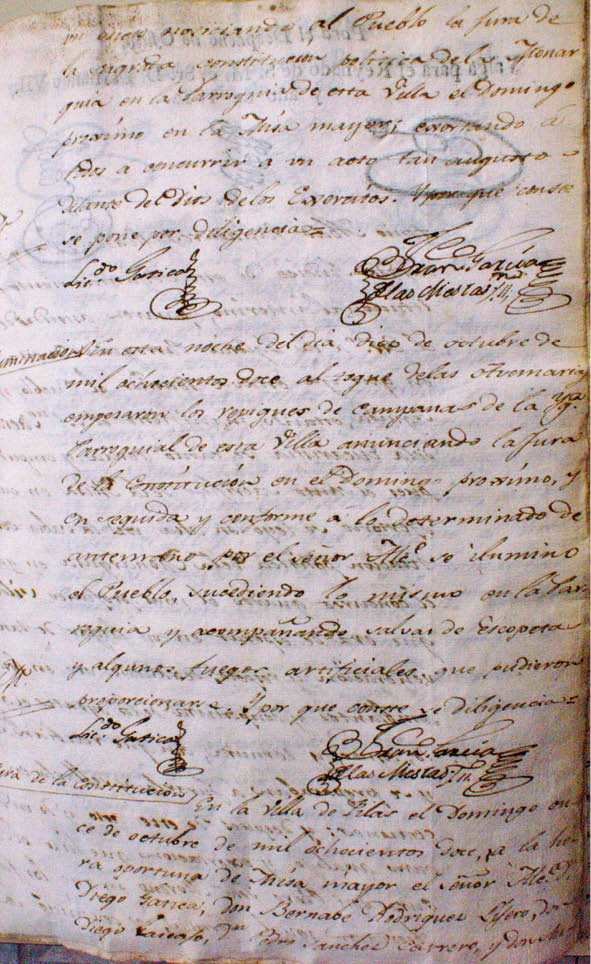 anunciando al Pueblo la Jura de
la sagrada constitucion politica de la Monar
quia en la Parroquia de esta Villa el Domingo
proximo en la Misa mayor; exortando á
todos a concurrir a un acto tan augusto
delante del Dios de los Exercitos. Y para que conste
se pone por diligencia=
Lic.do Garica
Fran.co Garcia
de las Mestas
En esta noche del dia diez de octubre de
mil ochocientos doce al toque de las Avemarias
empezaron los repiques de campanas de la Yg.a
Parroquial de esta Villa anunciando la Jura
de la Constitución en el Domingo proximo, y
en seguida y conforme á lo determinado de
antemano por el señor Alc.e se ilumino
el Pueblo, sucediendo lo mismo en la Par
roquia y acompañando salvas de Escopetas
y algunos fuegos artificiales que pudieron
proporcionarse. Y por que conste diligencia=
Lic.do Garica
Fran.co Garcia
de las Mestas
Jura de la Constitucion
En la Villa de Pilas el Domingo on
ce de octubre de mil ochocientos doce, a la ho
ra oportuna de Misa mayor el señor Alc.e D.
Diego Garica, don Bernabe Rodriguez, don
Diego, D.n Pedro Sanchez, y don